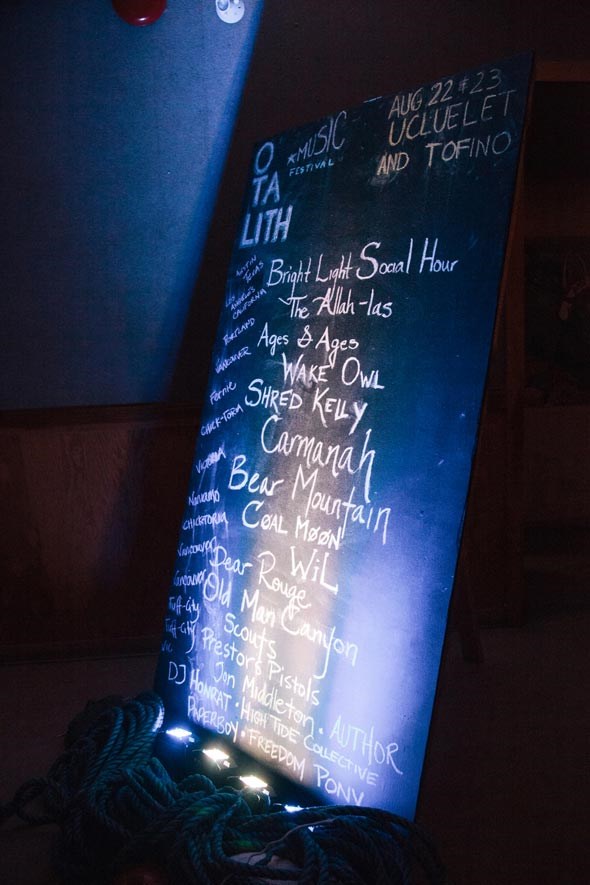 O
TA
LITH
*MUSIC
FESTIVAL
AUG 22 & 23
UCLUELET
AND TOFINO
AUSTIN
TEXAS
Bright Light Social Hour
LOS
ANGELES
CALIFORNIA
The Allah-las
PORTLAND
Ages & Ages
VANCOUVER
WAKE OWL
Fernie
SHRED KELLY
Carmanah
VICTORIA
Bear Mountain
Nanaimo
COAL MOON
WiL
VANCOUVER
Dear Rouge
Vancouver
Old Man Canyon
TUFF-City
Scouts
TUFF-City
Prestors Pistols
Vic
Jon Middleton · AUTHOR
DJ HONRAT · HIGH TIDE COLLECTIVE
PAPERBOY · FREEDOM PONY